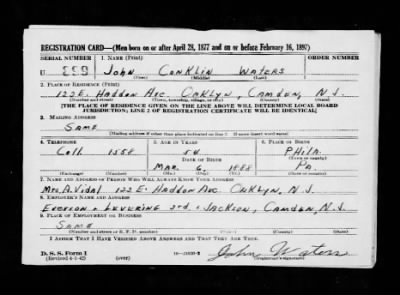 REGISTRATION CARD—(Men born on or after April 28, 1877 and on or before February 16, 1897)
SERIAL NUMBER 1. NAME (Print) ORDER NUMBER
U 899 John Conklin Waters
(First) (Middle) (Last)
2. PLACE OF RESIDENCE (Print)
122 E. Haddon Ave. Oaklyn, Camden, N.J.
(Number and street) (Town, township, village, or city) (County) (State)
[THE PLACE OF RESIDENCE GIVEN ON THE LINE ABOVE WILL DETERMINE LOCAL BOARD
JURISDICTION; LINE 2 OF REGISTRATION CERTIFICATE WILL BE IDENTICAL]
3. MAILING ADDRESS
Same
(Mailing address if other than place indicated on line 2. If same insert word same)
4. TELEPHONE 5. AGE IN YEARS 6. PLACE OF BIRTH
Coll. 1558 54 Phila
DATE OF BIRTH (Town or county)
Mar. 6, 1888 Pa
(Exchange) (Number) (Mo.) (Day) (Yr.) (State or country)
7. NAME AND ADDRESS OF PERSON WHO WILL ALWAYS KNOW YOUR ADDRESS
Mrs. A. Vidal 122 E. Haddon Ave. Oaklyn, N.J.
8. EMPLOYER'S NAME AND ADDRESS
Levering 2nd & Jackson, Camden, N.J.
9. PLACE OF EMPLOYMENT OR BUSINESS
Same
(Number and street or R. F. D. number) (Town) (County) (State)
I AFFIRM THAT I HAVE VERIFIED ABOVE ANSWERS AND THAT THEY ARE TRUE.
D. S. S. Form 1 John Waters
(Revised 4-1-42) (over) (Registrant's signature)